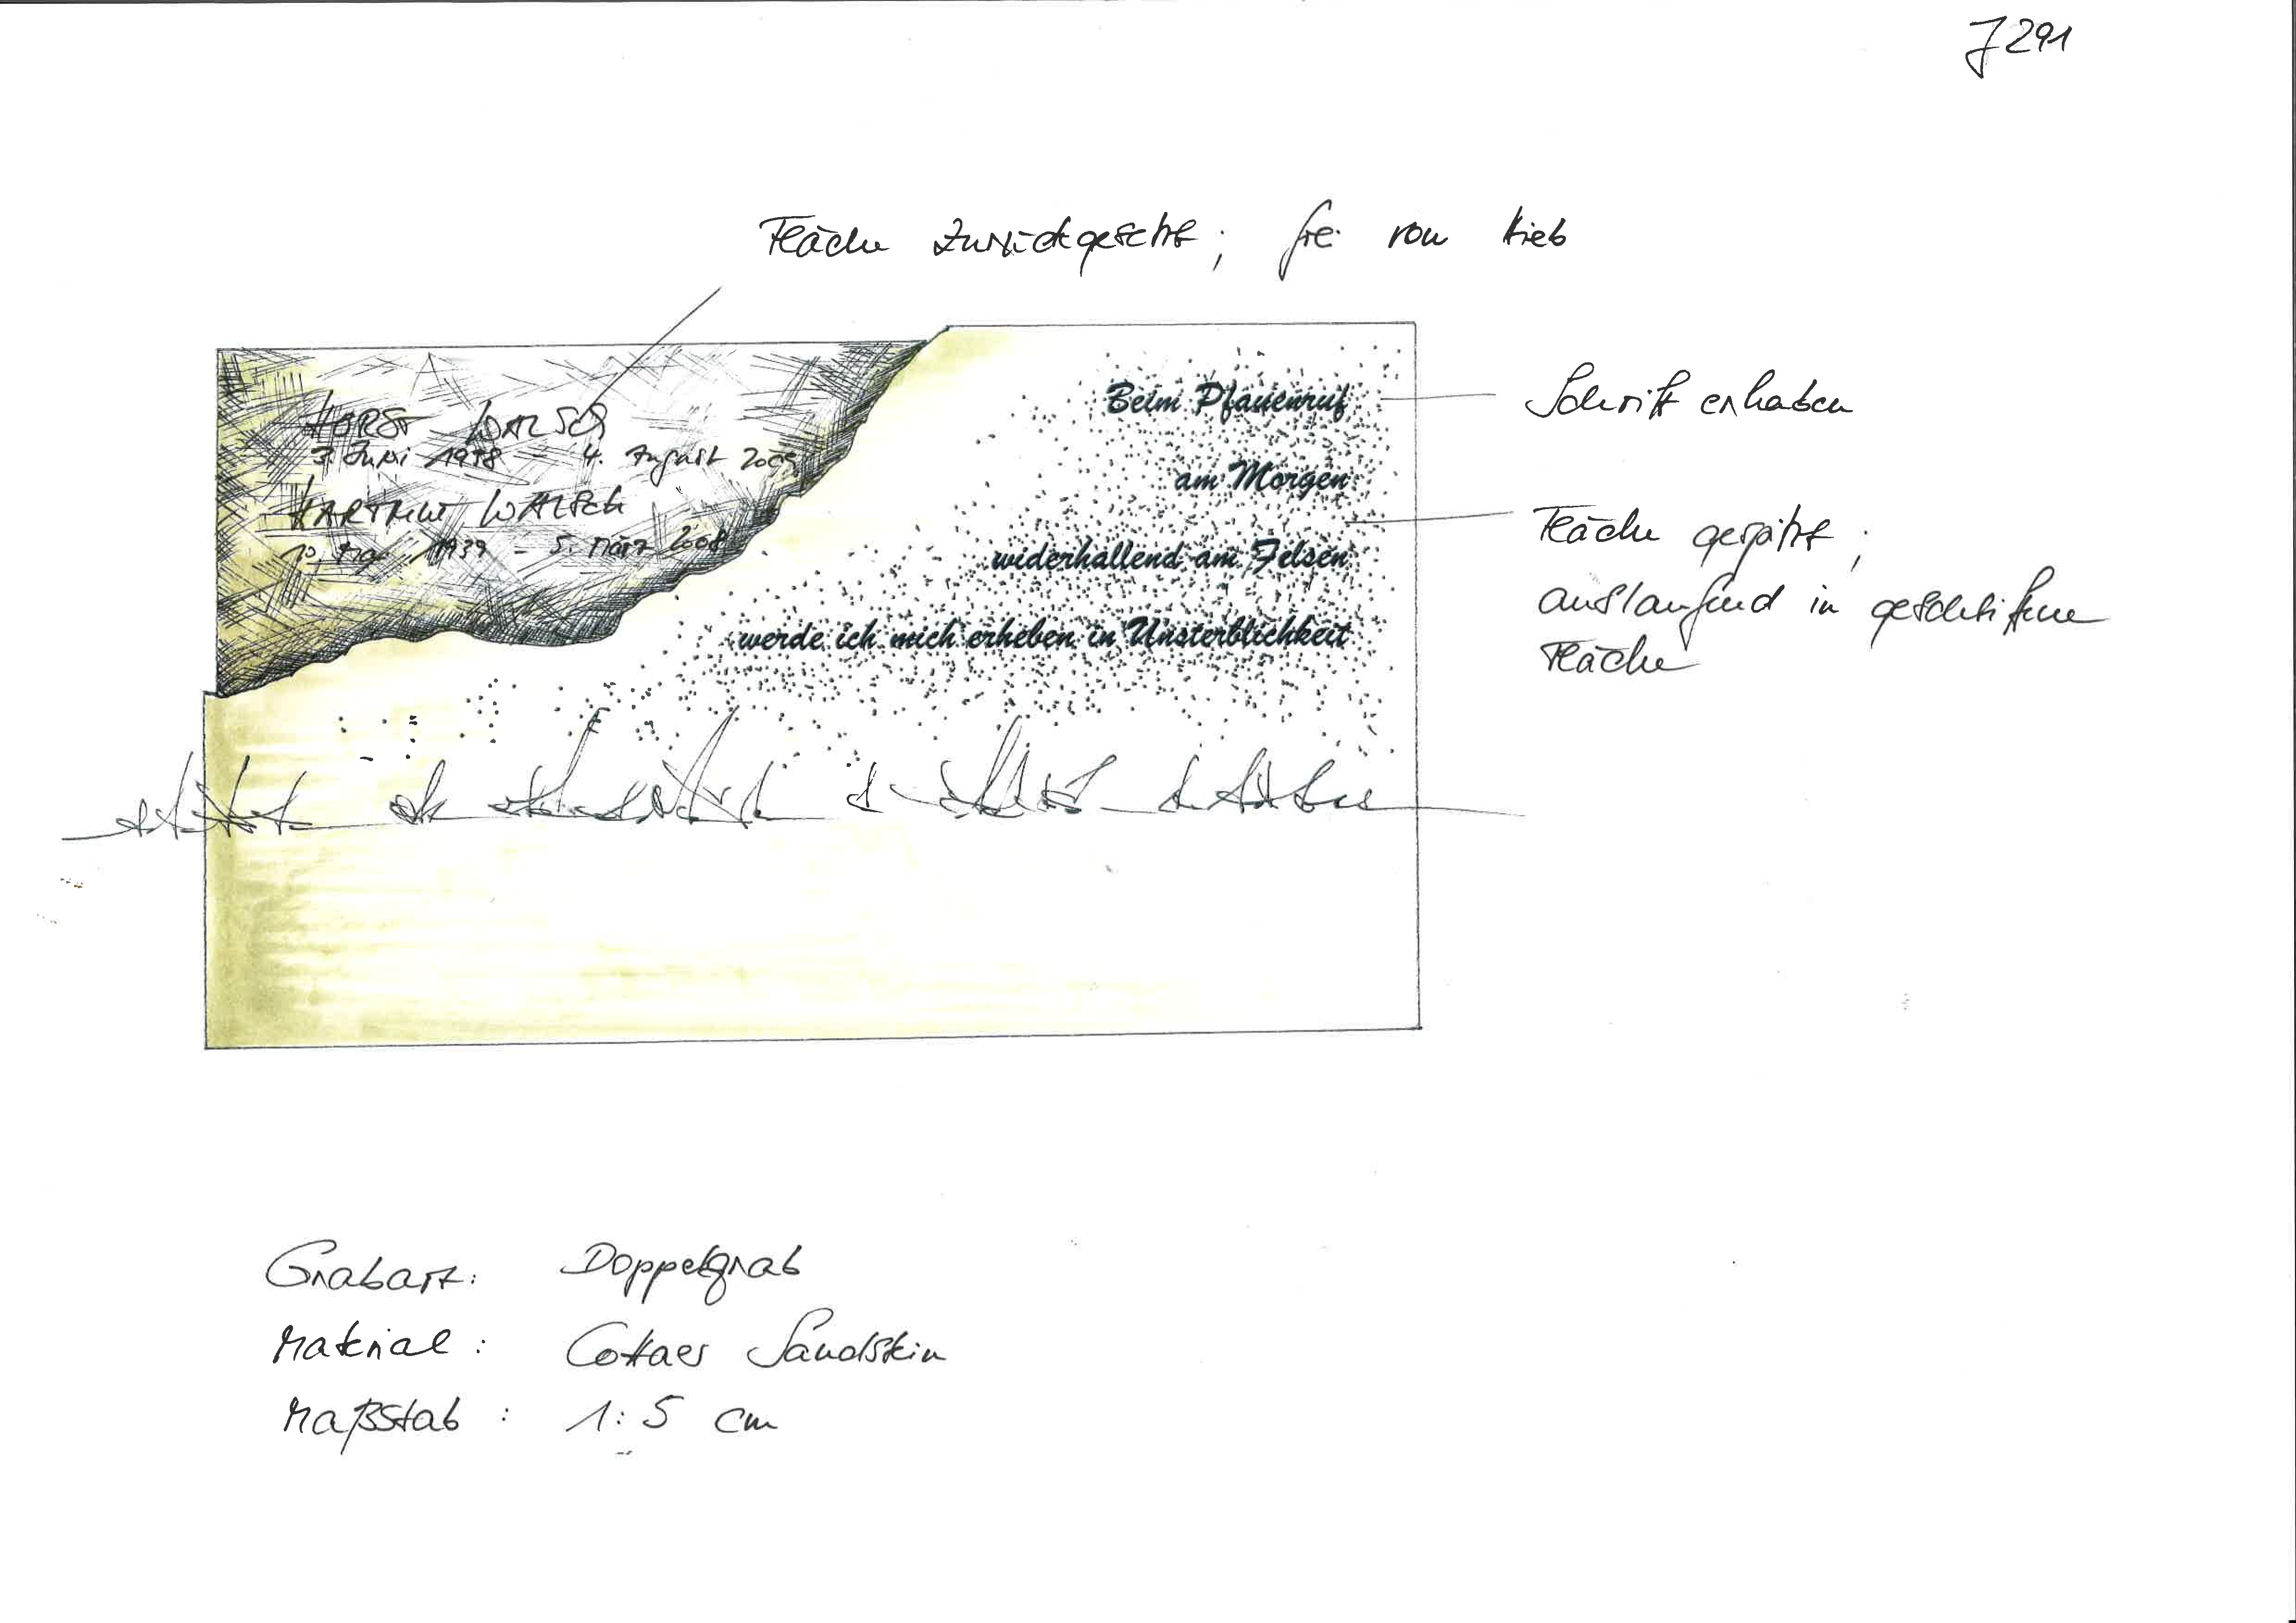 J 291
Fläche zurückgesetzt; frei von Hieb
HORST WALSCH
3. Juni 1938 - 4. August 2009
HARTMUT WALSCH
10. Mai 1939 - 5. März 2008
Beim Pfauenruf
am Morgen
widerhallend am Felsen
werde ich mich erheben in Unsterblichkeit
Schrift erhaben
Fläche gespitzt;
auslaufend in geschliffene
Fläche
Grabart: Doppelgrab
Material: Cottaer Sandstein
Maßstab: 1:5 cm